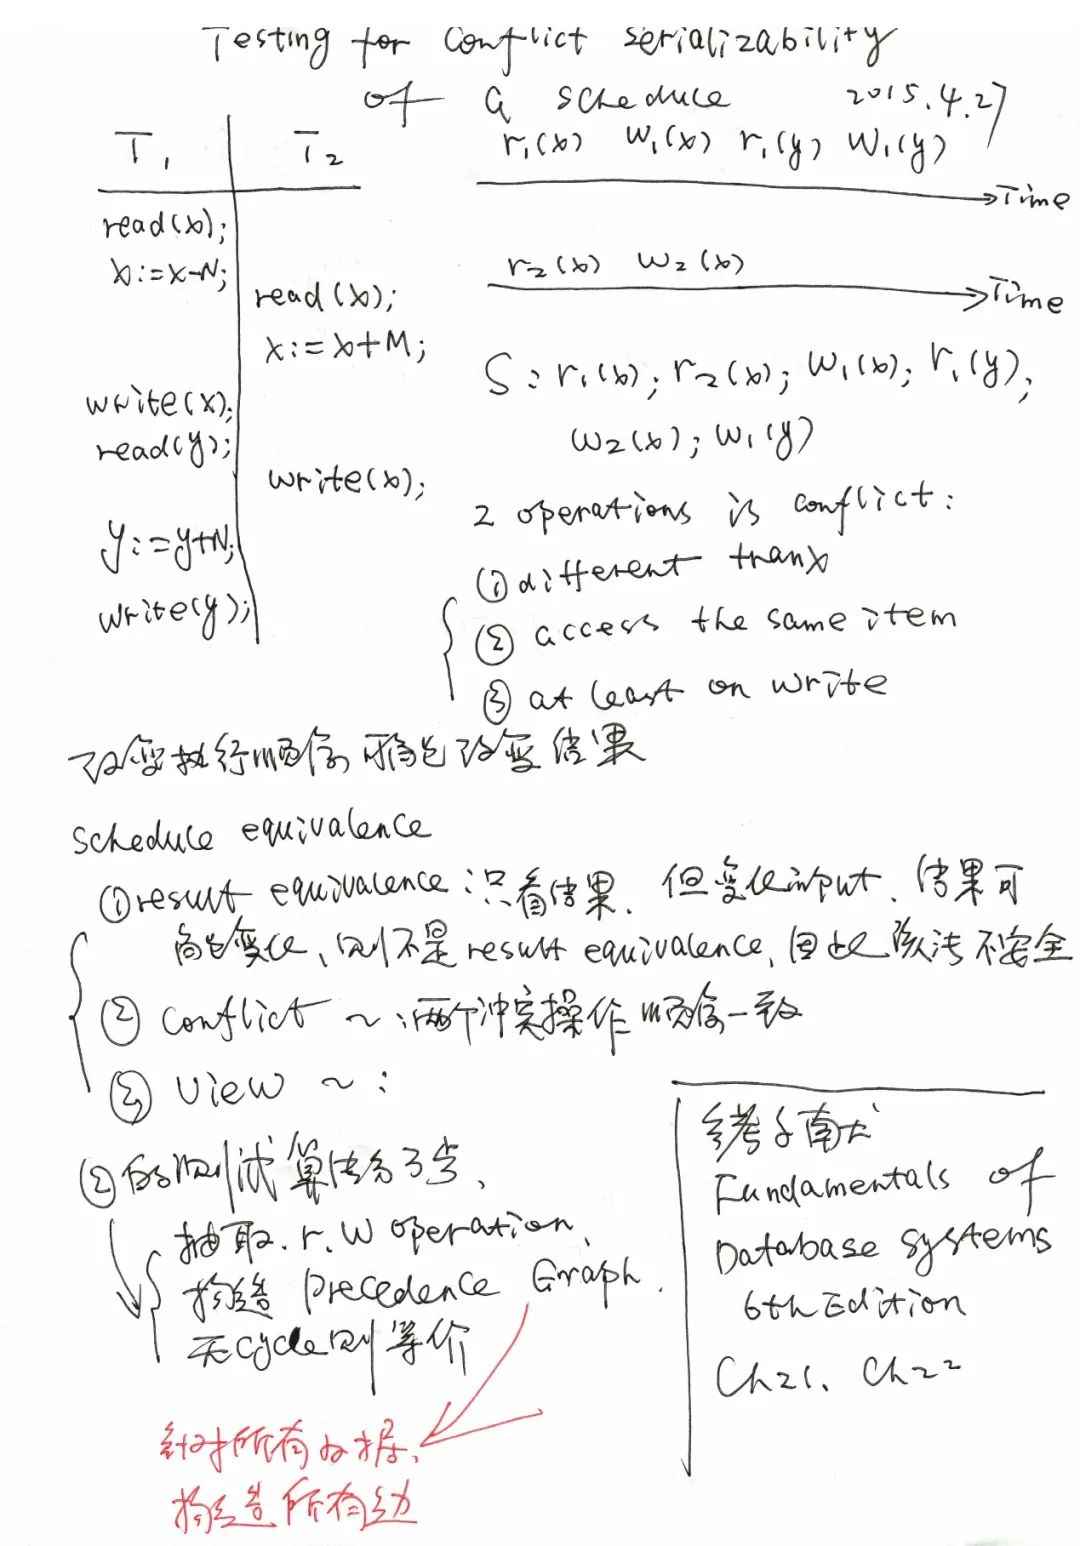 Testing for conflict serializability
of a schedule 2015.4.27
T1 T2
read(x);
x:=x-N;
read(x);
x:=x+M;
write(x);
read(y);
write(x);
y:=y+N;
write(y);
r1(x) w1(x) r1(y) w1(y)
Time
r2(x) w2(x)
Time
S: r1(x); r2(x); w1(x); r1(y);
w2(x); w1(y)
2 operations is conflict:
① different tranx
② access the same item
③ at least on write
改变执行顺序,可能改变结果
schedule equivalence
① result equivalence: 只看结果. 但变化input, 结果可
能变化、则不是result equivalence, 因此该法不安全
② conflict ~: 两个冲突操作顺序一致
③ view ~:
②的测试算法分3步、
抽取.r.w operation、
构造 Precedence Graph.
无cycle则等价
针对所有数据、
构造所有边
参考文献
Fundamentals of
Database systems
6th Edition
Ch21、Ch22